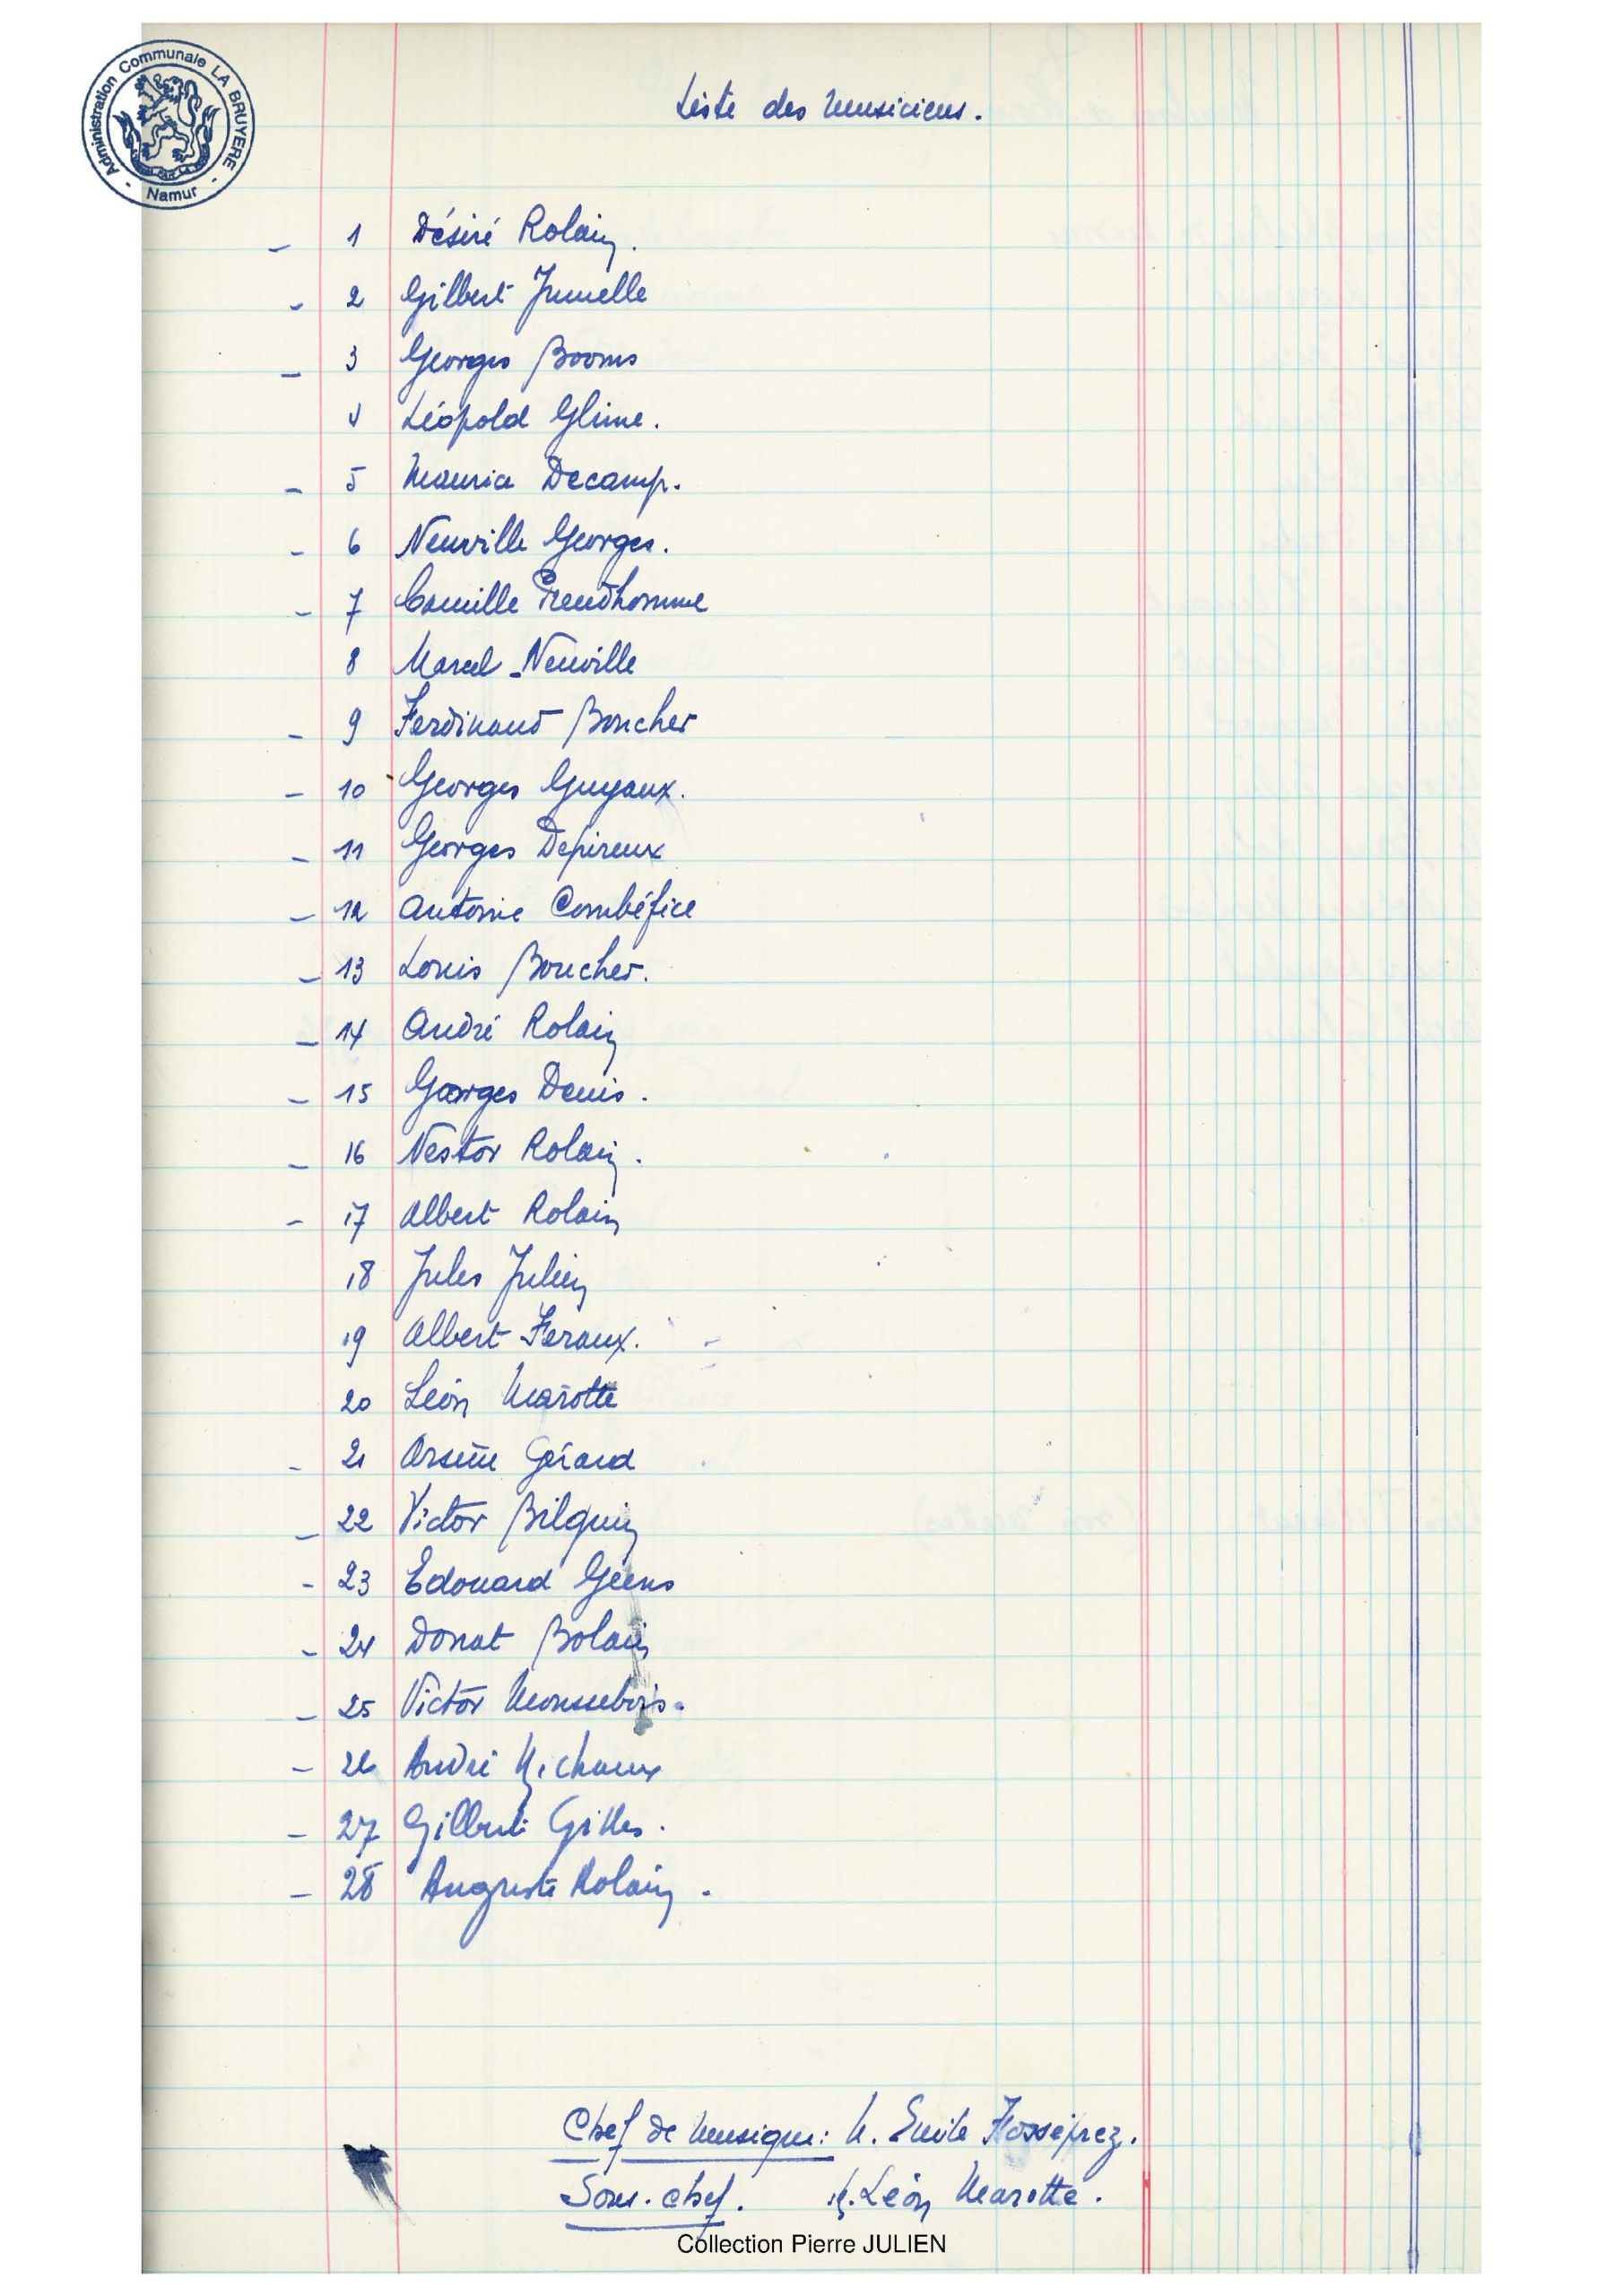 Administration Communale LA BRUYERE
- Namur -
Liste des Musiciens.
- 1 Désiré Rolain.
- 2 Gilbert Jumelle
- 3 Georges Booms
4 Léopold Glime.
- 5 Maurice Decamp.
- 6 Neuville Georges.
- 7 Camille Preudhomme
8 Marcel - Neuville
- 9 Ferdinand Boucher
- 10 Georges Guyaux.
- 11 Georges Depireux
- 12 Antoine Combéfice
- 13 Louis Boucher.
- 14 André Rolain
- 15 Georges Denis.
- 16 Nestor Rolain.
- 17 Albert Rolain
18 Jules Julien
19 Albert Feraux.
20 Léon Marotte
- 21 Arsène Gérard
- 22 Victor Bilquin
- 23 Edouard Geens
- 24 Donat Bolain
- 25 Victor
- 26 André Michaux
- 27 Gilbert Gilles.
- 28 Auguste Rolain.
Chef de Musique: M. Emile Fosséprez.
Sous-chef. M. Léon Marotte.
Collection Pierre JULIEN